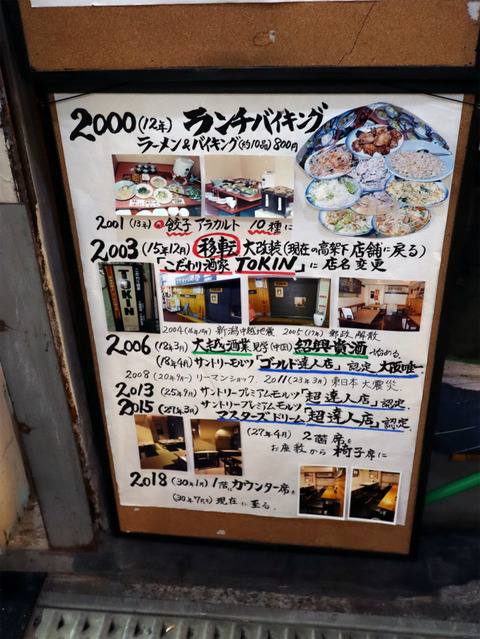 2000 (12年) ランチバイキング
ラーメン&バイキング(約10品) 800円
2001 (13年) 餃子 アラカルト 10種に
2003 (15年12月) 移転 大改装 (現在の高架下店舗に戻る)
「こだわり酒家 TOKIN」に店名変更
TOKIN
2004 (16年10月) 新潟中越地震 2005 (17年) 郵政解散
2006 (18年3月) 大越酒業見学(中国) 紹興貴酒 始める。
(18年4月) サントリーモルツ「ゴールド達人店」認定 大阪唯一
2008 (20年9月) リーマンショック 2011 (23年3月) 東日本大震災
2013 (25年9月) サントリープレミアムモルツ「超達人店」認定.
2015 (27年3月) サントリープレミアムモルツ
マスターズドリーム「超達人店」認定.
(27年4月) 2階席を
お座敷から 椅子席に
2018 (30年1月) 1階、カウンター席を
(30年7月) 現在に至る.